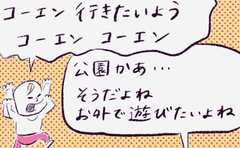 コーエン 行きたいよう
コーエン コーエン
公園かあ…
そうだよね
お外で遊びたいよね